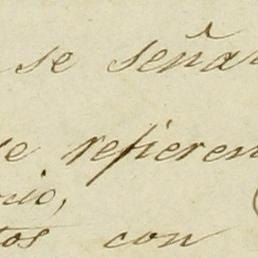 se seña
se refieren
tos con